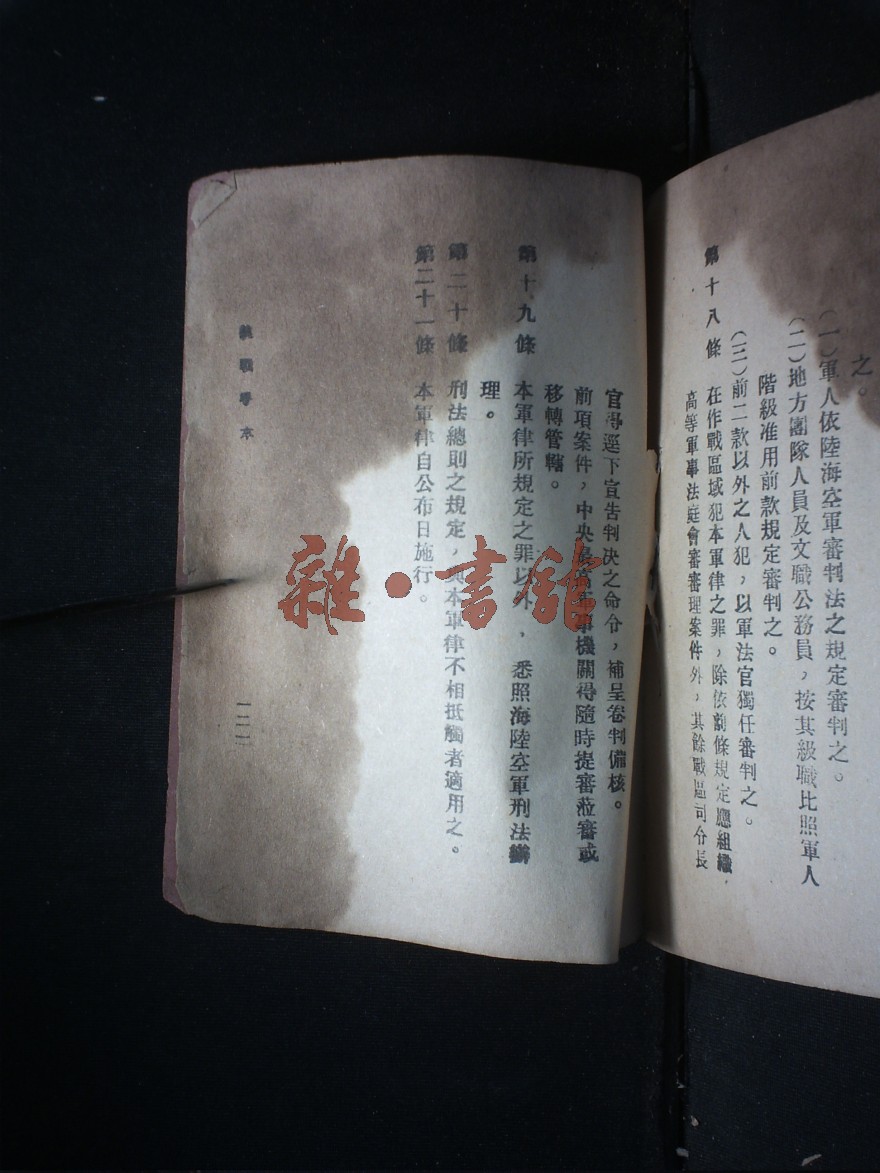 之。
(一)軍人依陸海空軍審判法之規定審判之。
(二)地方團隊人員及文職公務員,按其級職比照軍人
階級准用前款規定審判之。
(三)前二款以外之人犯,以軍法官獨任審判之。
第十八條 在作戰區域犯本軍律之罪,除依前條規定應組織
高等軍事法庭會審審理案件外,其餘戰區司令長
官得逕下宣告判決之命令,補呈卷判備核。
前項案件,中央最高軍事機關得隨時提審蒞審或
移轉管轄。
第十九條 本軍律所規定之罪以外,悉照海陸空軍刑法辦
理。
第二十條 刑法總則之規定,與本軍律不相抵觸者適用之。
第二十一條 本軍律自公布日施行。
戰
雜·書館